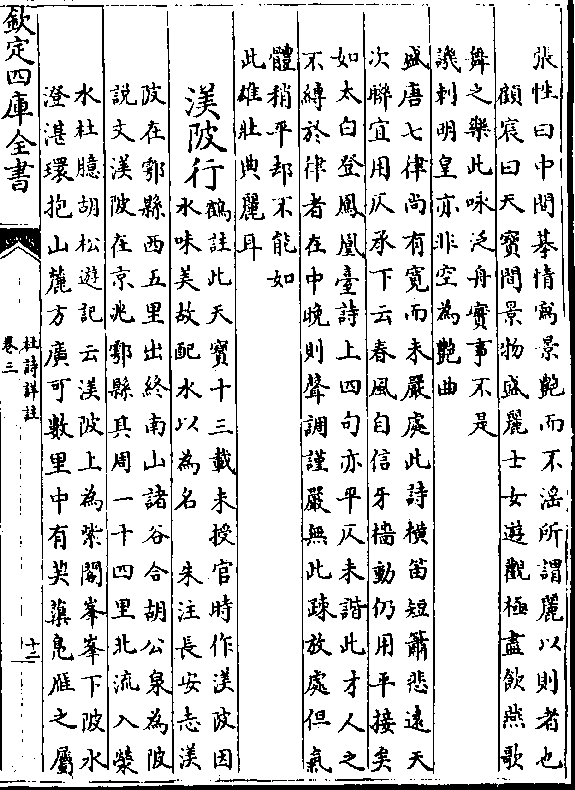 張性曰中間摹情寫景艶而不滛所謂麗以則者也
顧宸曰天寳間景物盛麗士女遊觀極盡飲燕歌
舞之樂此咏泛舟實事不是
譏刺明皇亦非空為艶曲
盛唐七律尚有寛而未嚴處此詩横笛短簫悲遠天
次聯宜用仄承下云春風自信牙檣動仍用平接矣
如太白登鳳凰臺詩上四句亦平仄未諧此才人之
不縛於律者在中晚則聲調謹嚴無此疎放處但氣
體稍平却不能如
此雄壯典麗耳
渼陂行
鶴註此天寳十三載未授官時作渼陂因
水味美故配水以為名 朱注長安志渼
陂在鄠縣西五里出終南山諸谷合胡公泉為陂
說文渼陂在京兆鄠縣其周一十四里北流入澇
水杜臆胡松遊記云渼陂上為紫閣峯峯下陂水
澄湛環抱山麓方廣可數里中有芙蕖鳬雁之屬
欽定四庫全書
杜詩詳註
卷三
十二